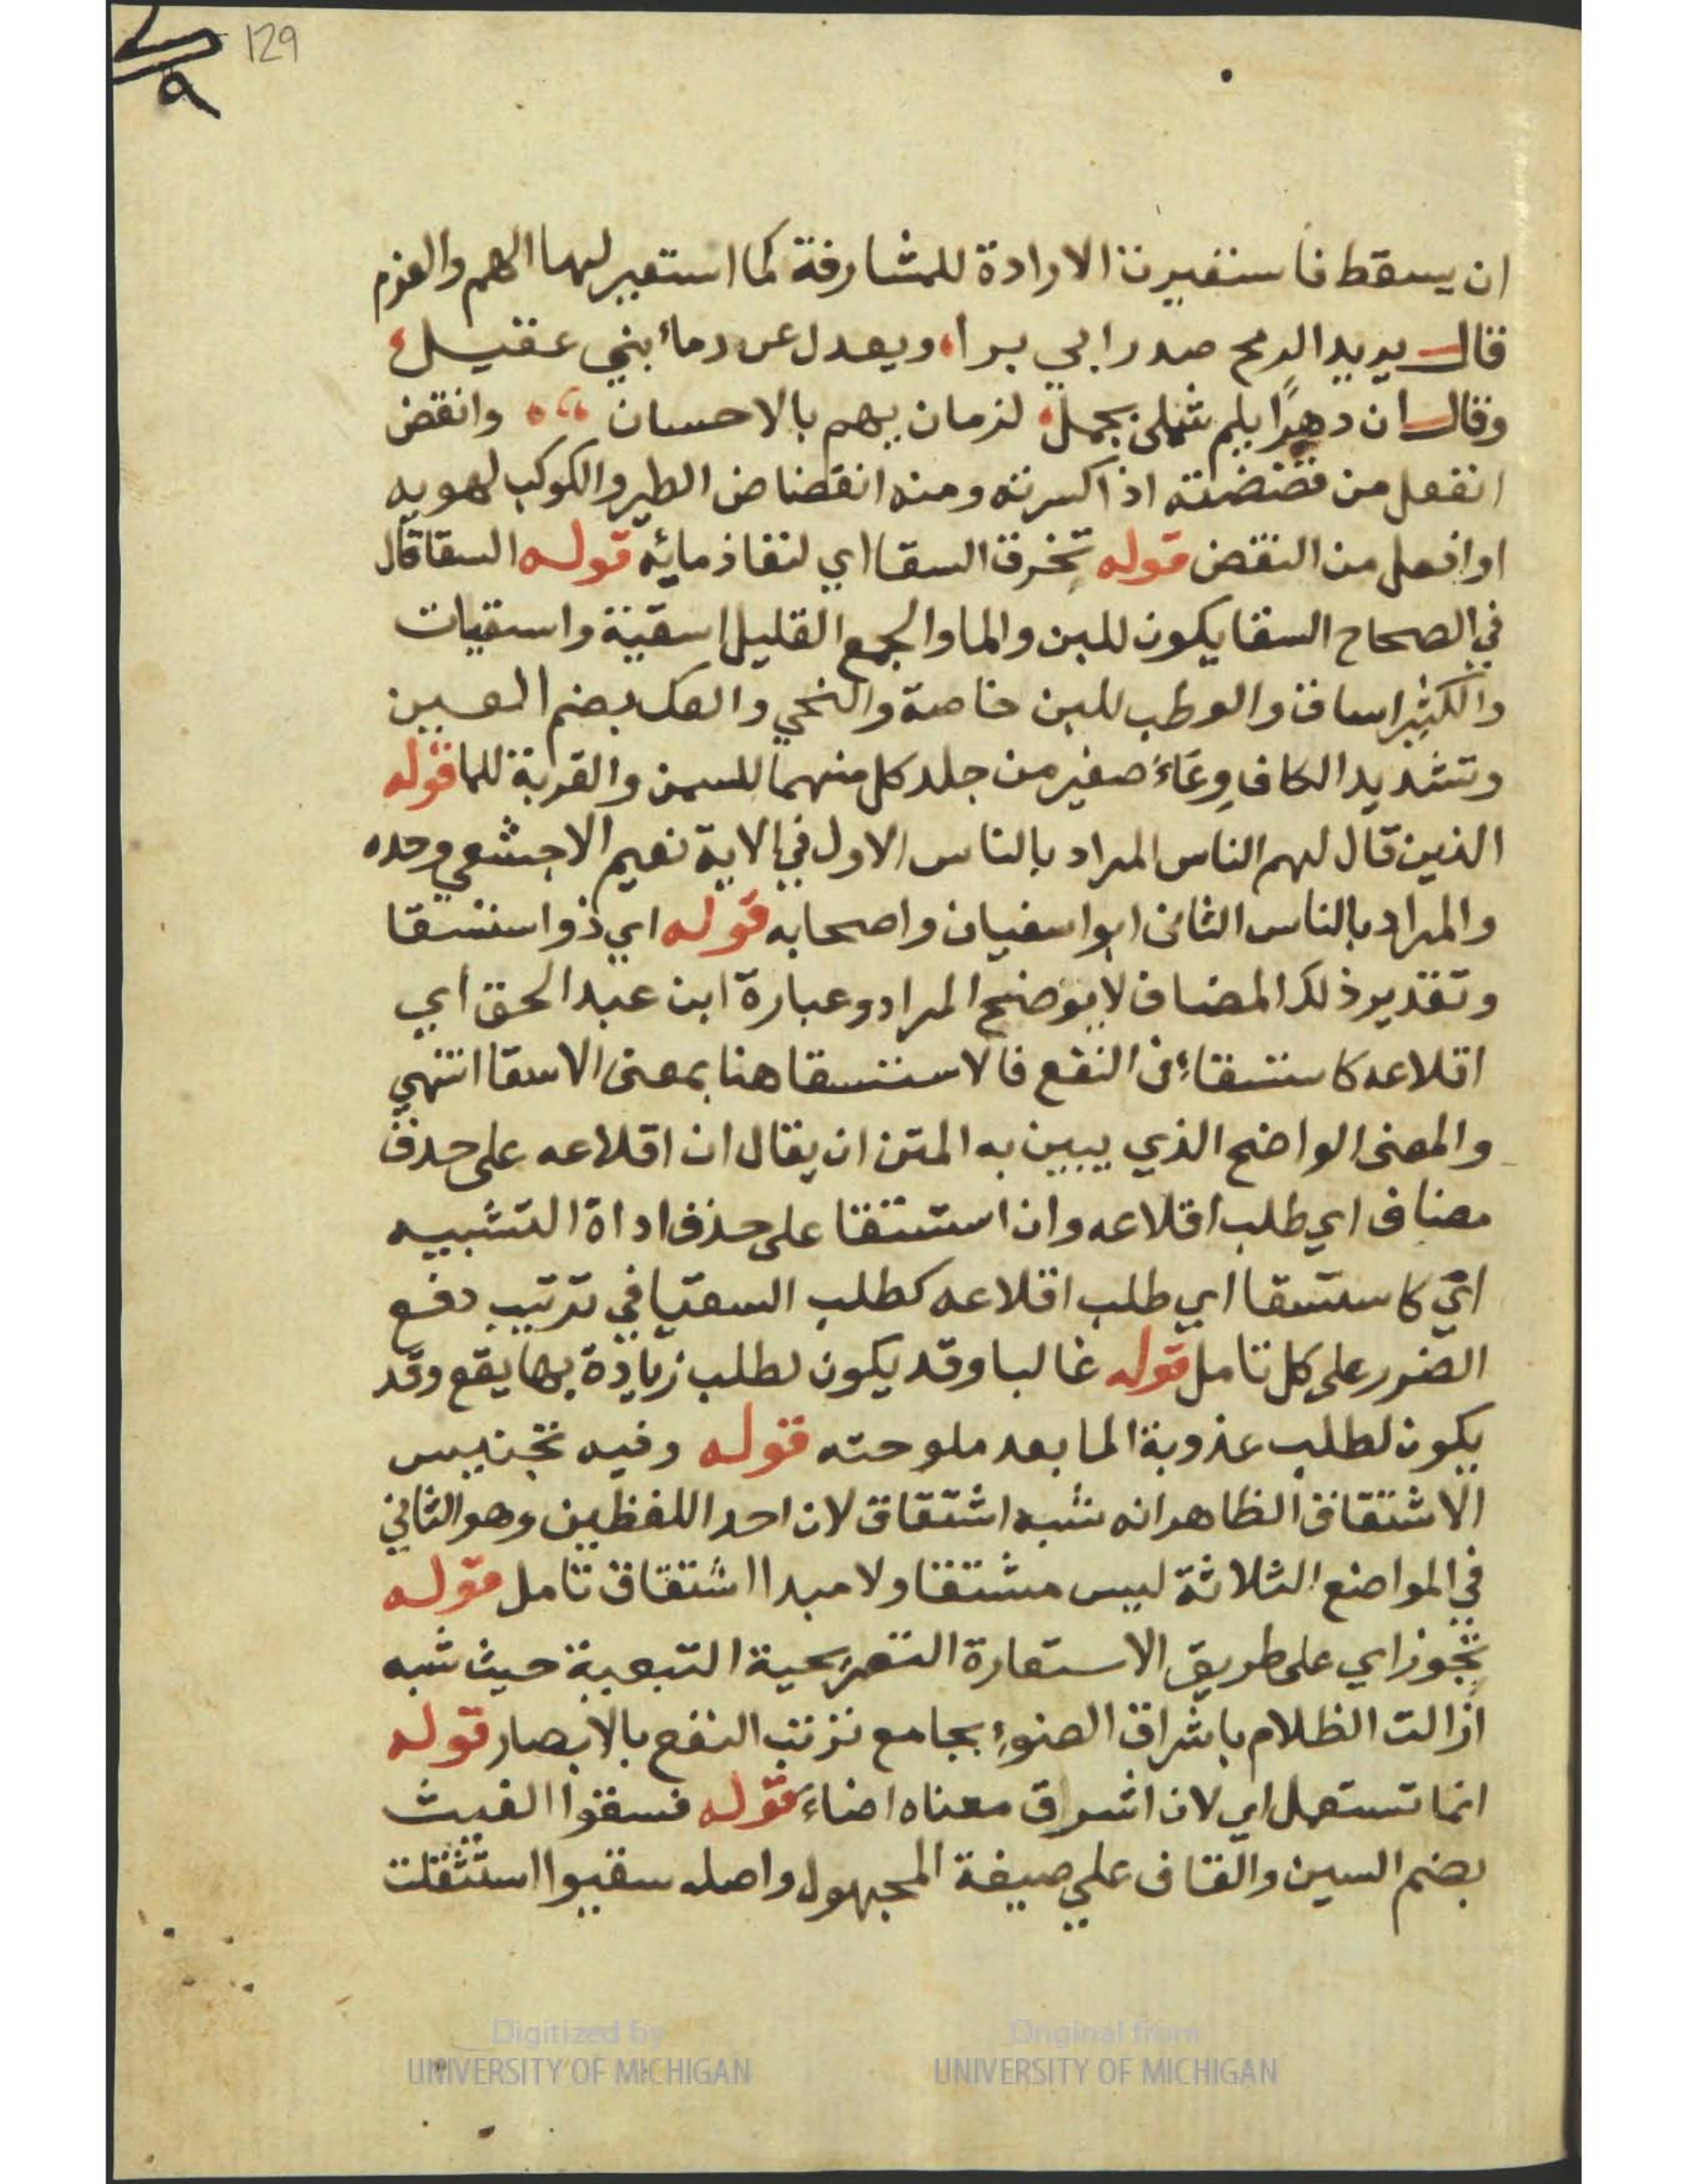 129
ان يسقط فاستعيرت الارادة للمشارفة كما استعير لها الهم والعزم
قال يريد الرمح صدر ابي براء ويعدل عن دماء بني عقيل
وقال ان دهرًا يلم شملى بجمل لزمان يهم بالاحسان وانقض
انفعل من قضضته اذا كسرته ومنه انقضاض الطير والكوكب لهويه
او افعل من النقض قوله تخرق السقا اي لنفاذ مائه قوله السقا قال
في الصحاح السقا يكون للبن والما والجمع القليل اسقية واسقيات
والكثير اساق والوطب للبن خاصة والنحي والعك بضم العين
وتشديد الكاف وعَاءٌ صغير من جلد كل منهما للسمن والقربة للما قوله
الذين قال لهم الناس المراد بالناس الاول في الاية نعيم الاجشعي وحده
والمراد بالناس الثانى ابوا سفيان واصحابه قوله اي ذو استسقا
وتقدير ذلك المضاف لا يوضح المراد وعبارة ابن عبد الحق اي
اقلاعه كاستسقاء فى النفع فالاستسقا هنا بمعنى الاسقا انتهي
والمعنى الواضح الذي يبين به المتن ان يقال ان اقلاعه على حذف
مضاف اي طلب اقلاعه وان استسقا على حذف اداة التشبيه
اي كاستسقا اي طلب اقلاعه كطلب السقيا في ترتيب دفع
الضرر على كل تامل قوله غالبا وقد يكون لطلب زيادة بها يقع وقد
يكون لطلب عذوبة الما بعد ملوحته قوله وفيه تجنيس
الاشتقاق الظاهر انه شبه اشتقاق لان احد اللفظين وهو الثاني
في المواضع الثلاثة ليس مشتقا ولا مبدا اشتقاق تامل قوله
تجوز اي على طريق الاستعارة التصريحية التبعية حيث شبه
ازالت الظلام باشراق الضوء بجامع ترتب النفع بالابصار قوله
انما تستعمل اي لان اشراق معناه اضاءَ قوله فسقوا الغيث
بضم السين والقاف علي صيغة المجهول واصله سقيوا استثقلت
Digitized by
UNIVERSITY OF MICHIGAN
Original from
UNIVERSITY OF MICHIGAN